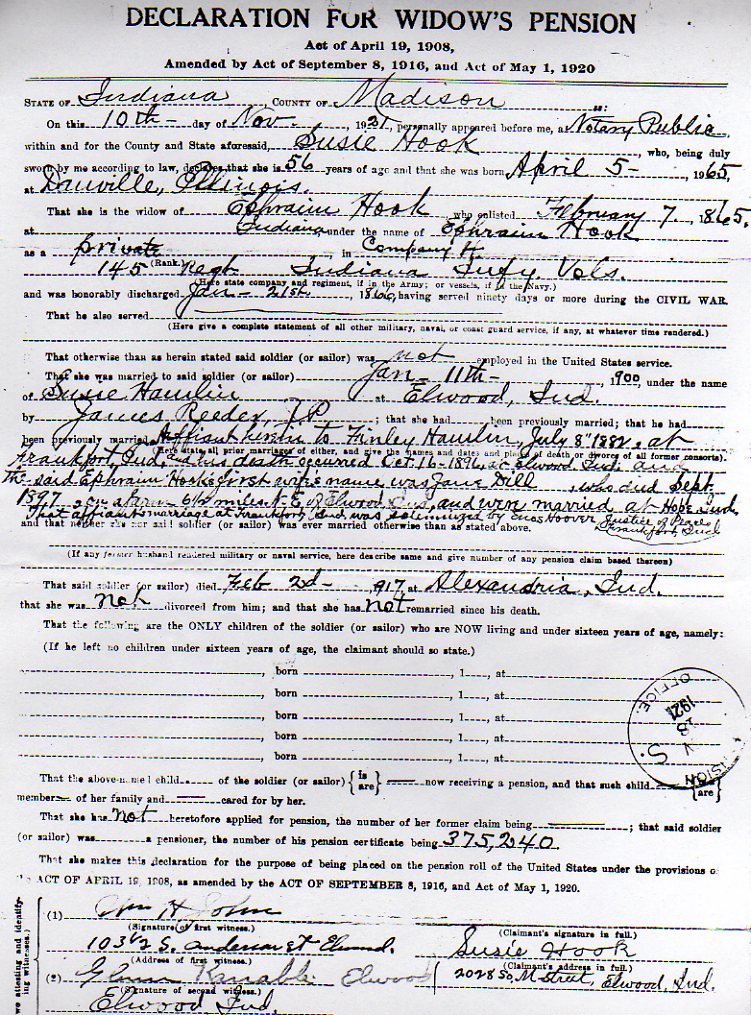 DECLARATION FOR WIDOW'S PENSION
Act of April 19, 1908,
Amended by Act of September 8, 1916, and Act of May 1, 1920
STATE OF Indiana, COUNTY OF Madison ss:
On this 10th- day of Nov-, 1921, personally appeared before me, a Notary Public,
within and for the County and State aforesaid, Susie Hook, who, being duly
sworn by me according to law, declares that she is 56 years of age and that she was born April 5-, 1965,
at Danville, Illinois.
That she is the widow of Ephraim Hook who enlisted February 7, 1865.
at Indiana, under the name of Ephraim Hook
as a private, in Company H.
(Rank.)
145 Regt Indiana Infy Vols.
(Here state company and regiment, if in the Army; or vessels, if in the Navy.)
and was honorably discharged Jan- 21st, 1866, having served ninety days or more during the CIVIL WAR.
That he also served
(Here give a complete statement of all other military, naval, or coast guard service, if any, at whatever time rendered.)
That otherwise than as herein stated said soldier (or sailor) was not employed in the United States service.
That she was married to said soldier (or sailor) Jan- 11th-, 1900 under the name
of Susie Hamlin at Elwood, Ind.
by James Reeder, J.P; that she had been previously married; that he had
been previously married. Affiant herein to Finley Hamlin, July 8" 1882, at
(Here state all prior marriages of either, and give the names and dates and places of death or divorce of all former consorts).
Frankfort, Ind, and his death occurred Oct. 16-1896, at Elwood Ind; and
The said Ephraim Hooks first wife's name was Jane Dill, who died Sept.
1897, on a farm 6½ miles N.E. of Elwood Ind, and were married at Hope Ind.
That affiants marriage at Frankfort, Ind was solemnized by Enos Hoover Justice of Peace Frankfort, Ind
and that neither she nor said soldier (or sailor) was ever married otherwise than as stated above.
(If any former husband rendered military or naval service, here describe same and give number of any pension claim based thereon)
That said soldier (or sailor) died Feb 2d-, 1917, at Alexandria, Ind.
that she was not divorced from him; and that she has not remarried since his death.
That the following are the ONLY children of the soldier (or sailor) who are NOW living and under sixteen years of age, namely:
(If he left no children under sixteen years of age, the claimant should so state.)
, born , 1 , at
, born , 1 , at
, born , 1 , at
, born , 1 , at
, born , 1 , at
SION OFFICE.
18
1921
U.S.
That the above-named child of the soldier (or sailor) {is are} now receiving a pension, and that such child {are}
member of her family and cared for by her.
That she has not heretofore applied for pension, the number of her former claim being ; that said soldier
(or sailor) was a pensioner, the number of his pension certificate being 375,240.
That she makes this declaration for the purpose of being placed on the pension roll of the United States under the provisions o
ACT OF APRIL 19, 1908, as amended by the ACT OF SEPTEMBER 8, 1916, and Act of May 1, 1920.
we attesting and identify-
ing witnesses.)
(1) Wm H John
(Signature of first witness.)
103½ S. Anderson st Elwood.
(Address of first witness.)
(2) Knable Elwood
(Signature of second witness.)
Elwood Ind.
(Claimant's signature in full.)
Susie Hook
(Claimant's address in full.)
2028 So, M Street, Elwood, Ind.